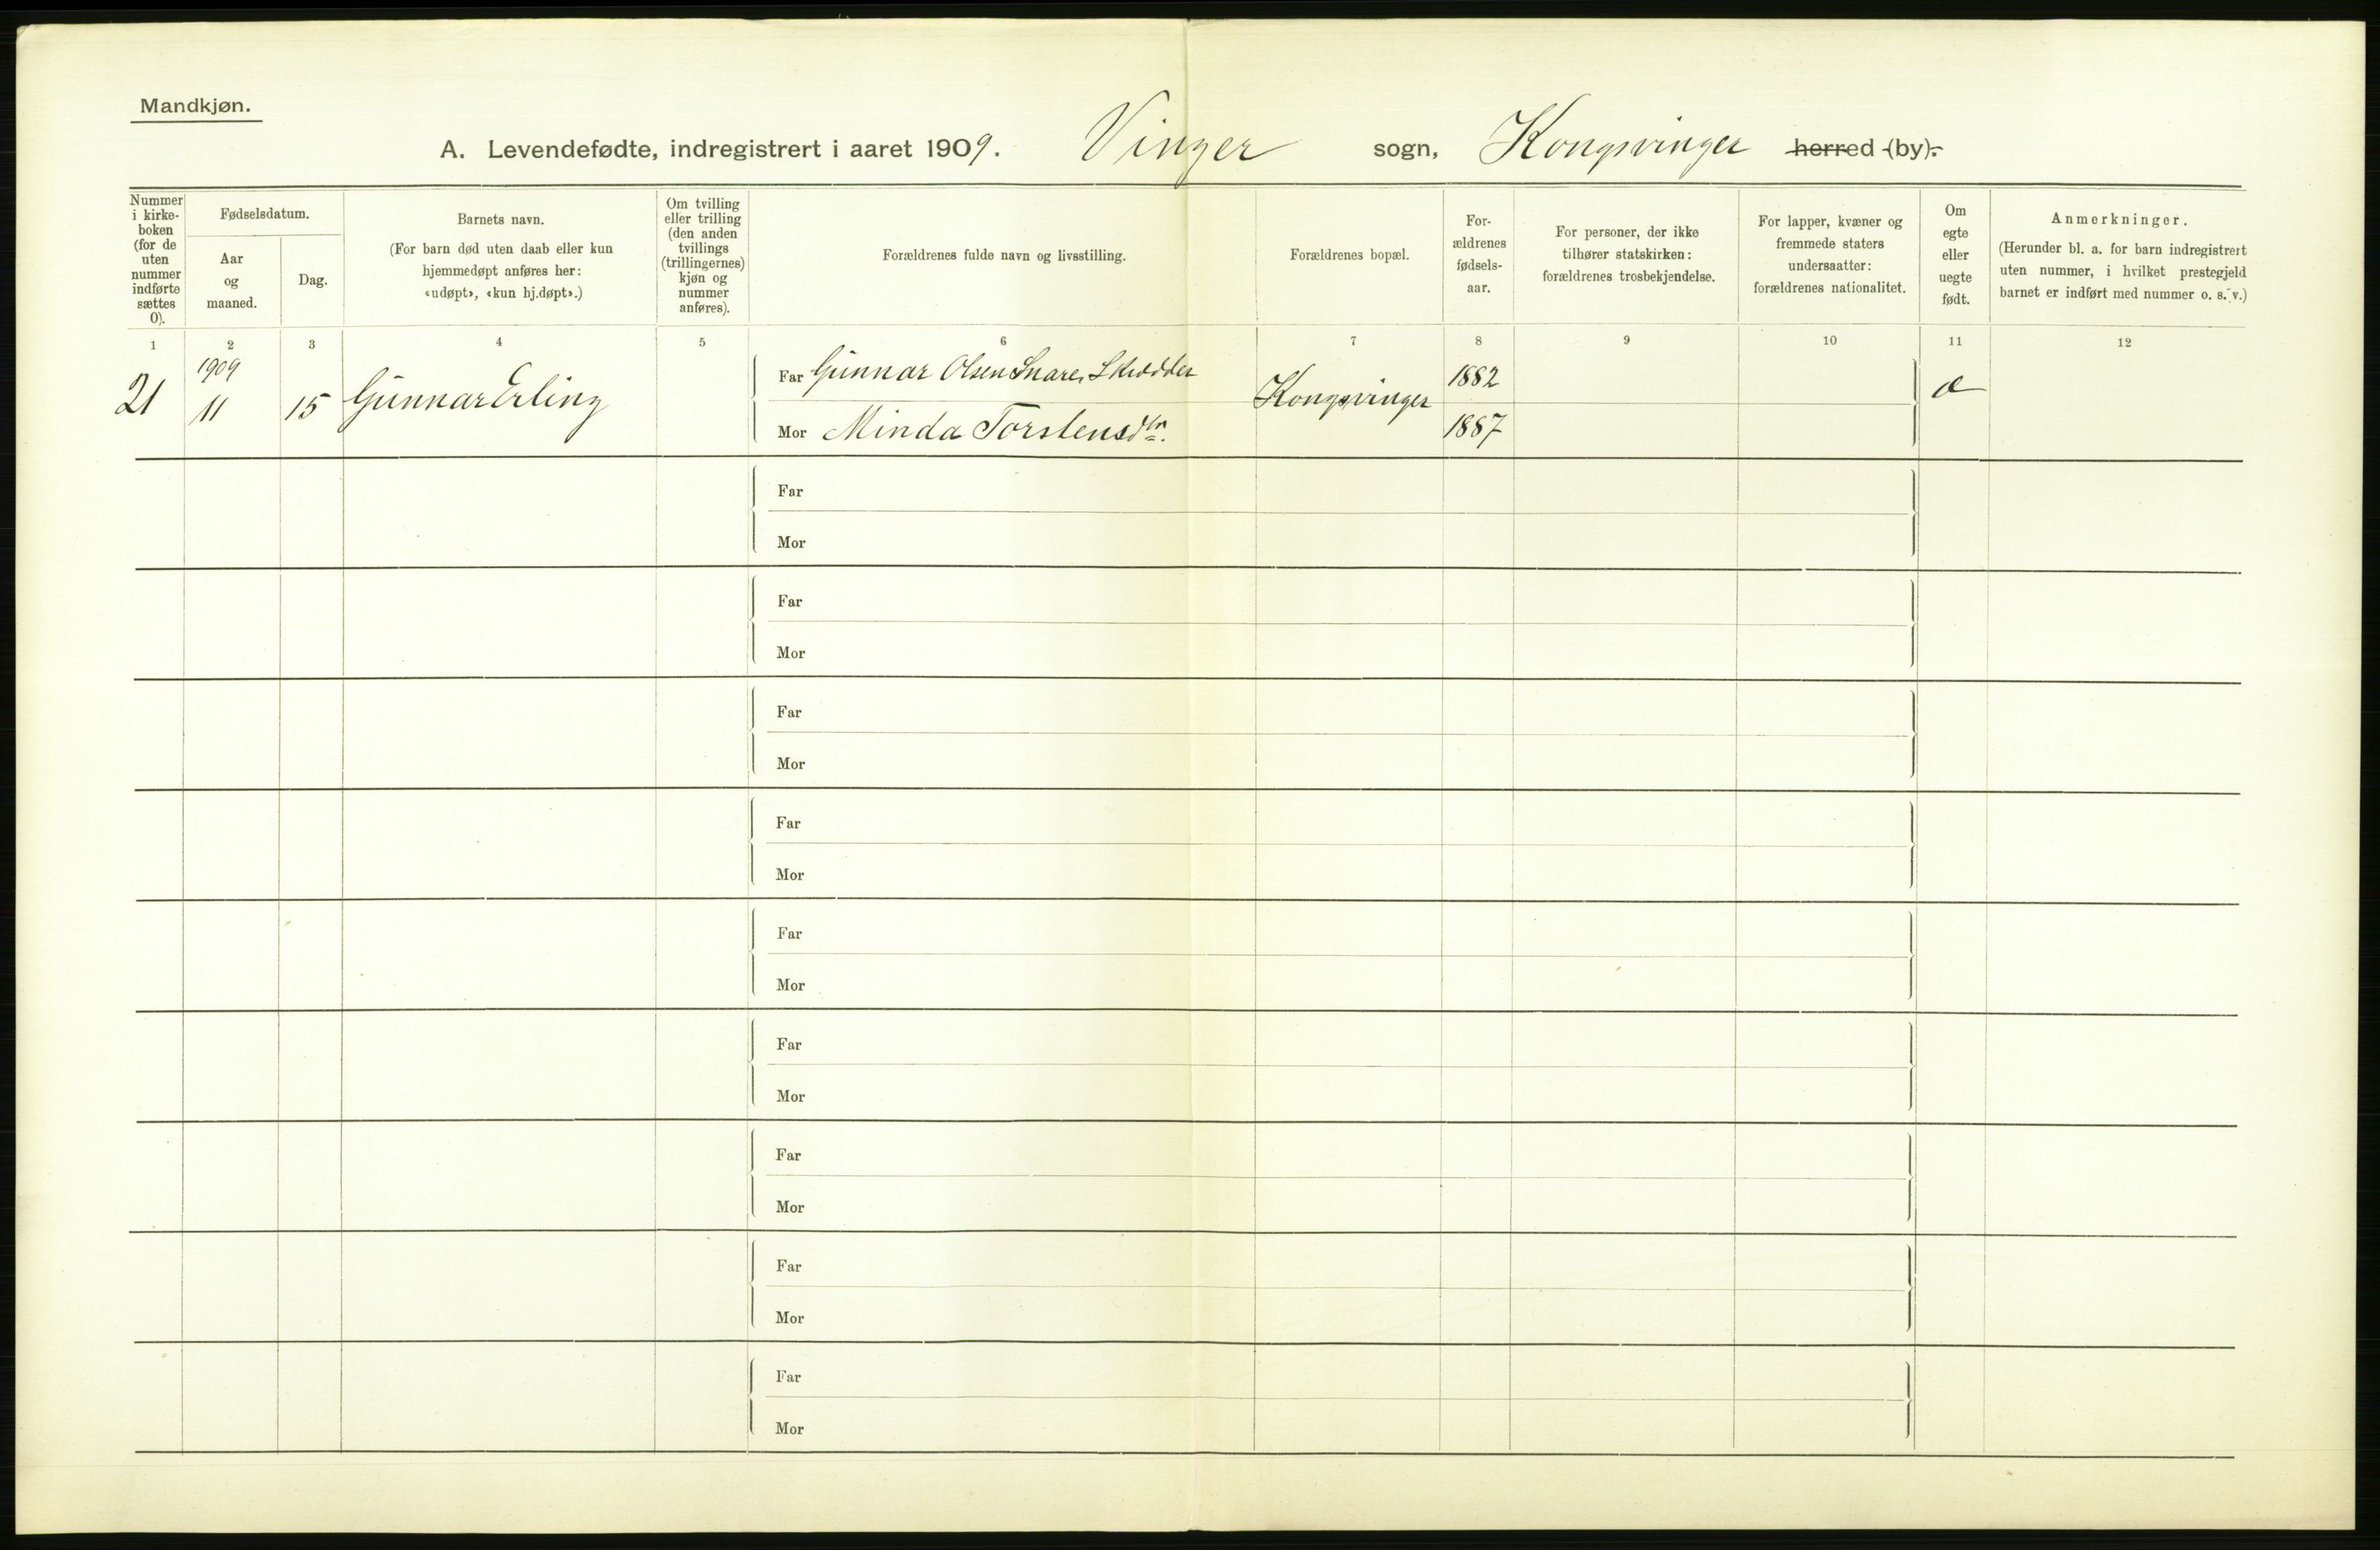 Mandkjøn.
A. Levendefødte, indregistrert i aaret 1909. Vinger sogn, Kongsvinger herred (by).
Nummer i kirke-boken (for de uten nummer indførte sættes 0).
Fødselsdatum.
Aar og maaned.
Dag.
Barnets navn.
(For barn død uten daab eller kun hjemmedøpt anføres her: «udøpt», «kun hj.døpt».)
Om tvilling eller trilling (den anden tvillings (trillingernes) kjøn og nummer anføres).
Forældrenes fulde navn og livsstilling.
Forældrenes bopæl.
For-ældrenes fødsels-aar.
For personer, der ikke tilhører statskirken: forældrenes trosbekjendelse.
For lapper, kvæner og fremmede staters undersaatter: forældrenes nationalitet.
Om egte eller uegte født.
Anmerkninger.
(Herunder bl. a. for barn indregistrert uten nummer, i hvilket prestegjeld barnet er indført med nummer o. s. v.)
1 2 3 4 5 6 7 8 9 10 11 12
1909
21 11 15 Gunnar Erling
Far Gunnar Olsen Snare, Skrædder Kongsvinger 1882
Mor Minda Torstensdtr. 1887
Far
Mor
Far
Mor
Far
Mor
Far
Mor
Far
Mor
Far
Mor
Far
Mor
Far
Mor
Far
Mor